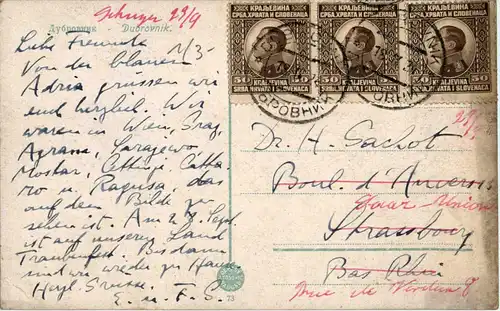 Дубровник Dubrovnik.
1/3-
Liebe Freunde
Von der blauen
Adria grüssen wir
euch herzlich. Wir
waren in Wien, Graz,
Agram, Sarajewo,
Mostar, Cettinje Catta-
ro u. Ragusa, das
auf dem Bilde zu
sehen ist. Am 28. Sept.
ist auf unserem Land
Traubenfest. Bis dann
sind wir wieder zu Hause
Herzl. Grüsse.
E. u. F. S.
73
КРАЉЕВИНА
СРБА, ХРВАТА И СЛОВЕНАЦА
50 50
KRALJEVINA
SRBA, HRVATA I SLOVENACA
КРАЉЕВИНА
СРБА, ХРВАТА И СЛОВЕНАЦА
50 50
KRALJEVINA
SRBA, HRVATA I SLOVENACA
КРАЉЕВИНА
СРБА, ХРВАТА И СЛОВЕНАЦА
50 50
KRALJEVINA
SRBA, HRVATA I SLOVENACA
Dr. H. Gachot
Boul. d'Anvers
Saar Union
Strassbourg
Bas Rhin
rue de Verdun 8